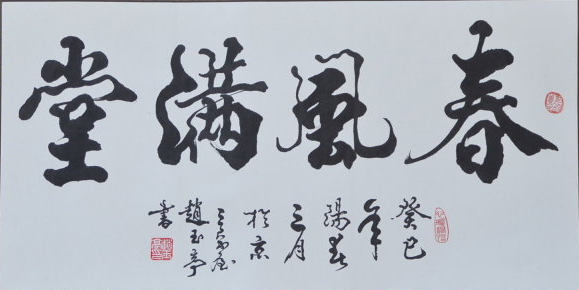 春風滿堂
癸巳
年
陽春
三月
於京
趙玉亭
書